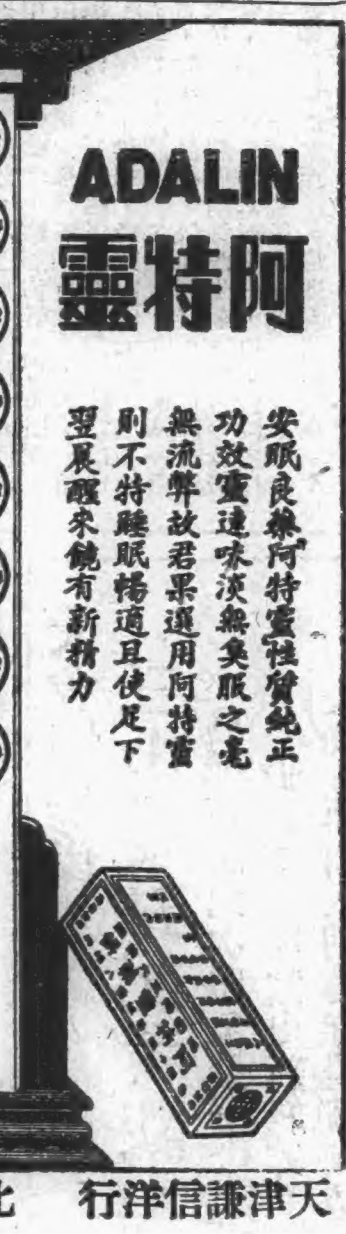 ADALIN
阿特靈
安眠良藥阿特靈性質純正
功效靈速味淡無臭服之毫
無流弊故君果選用阿特靈
則不特睡眠暢適且使足下
翌晨醒來饒有新精力
天津謙信洋行